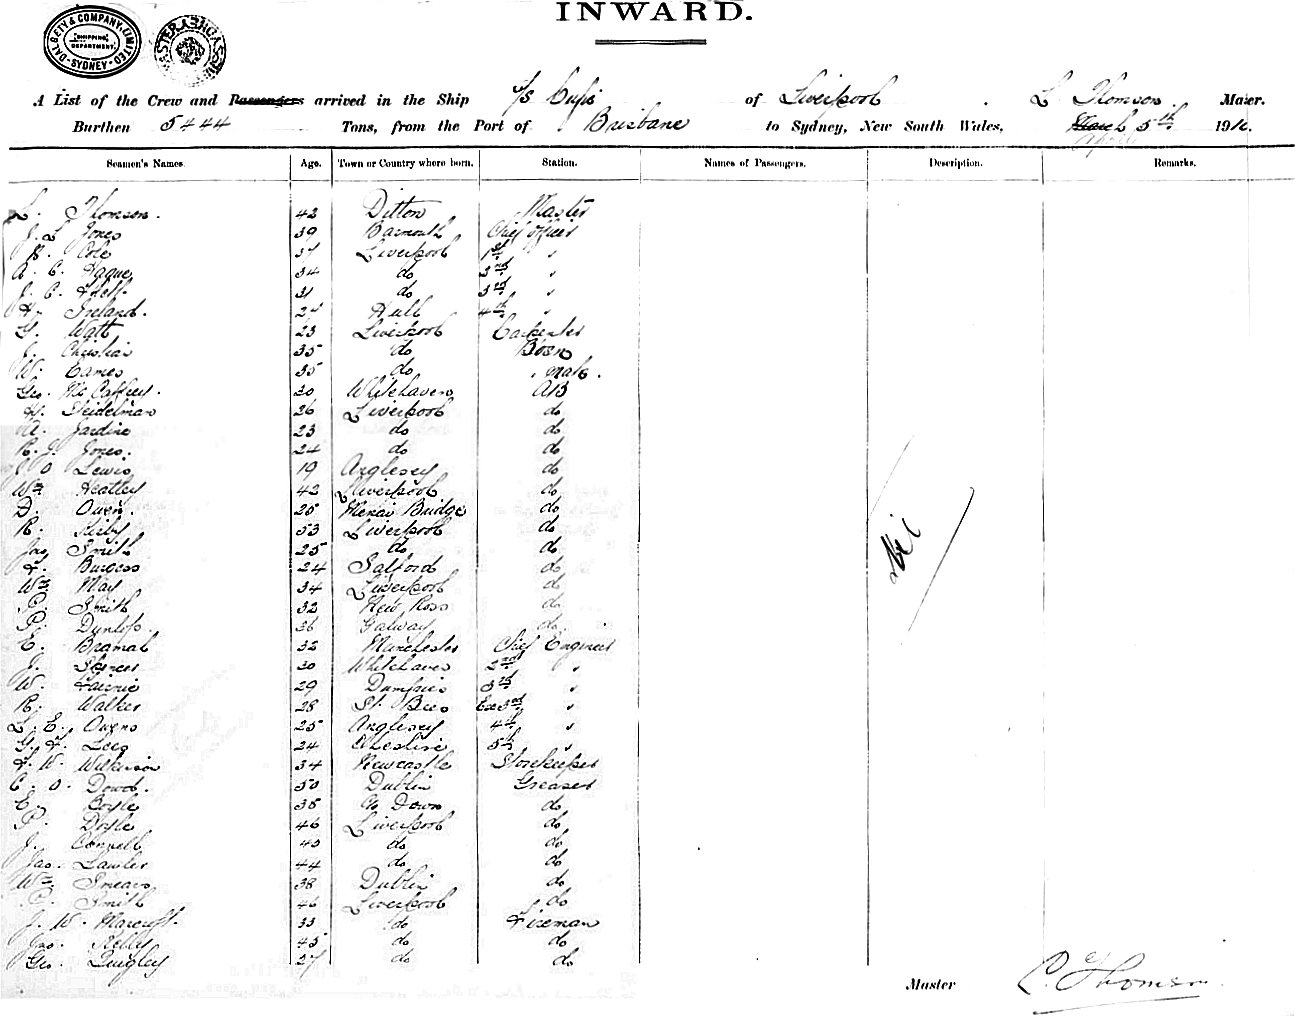 INWARD.
DALGETY & COMPANY, LIMITED SHIPPING DEPARTMENT. SYDNEY
A List of the Crew and Passengers arrived in the Ship s/s of Liverpool. L Thomson. Master.
Burthen 5444 Tons, from the Port of Brisbane to Sydney, New South Wales, March 5th April 191
Seamen's Names. Age. Town or Country where born. Station. Names of Passengers. Description. Remarks.
L. Thomson. 42 Ditton Master
J. L Jones 39 Barmouth Chief Officer
Cole 37 Liverpool 1st "
A. C. Hague 34 do 2nd "
J. C. 31 do 3rd "
H. Ireland. 24 Hull 4th "
G. Watt 23 Liverpool Carpenter
J. Christian 35 do Bosn
W. Eames 35 do " mate.
Geo. McCaffrey. 30 Whitehaven AB
H. Steidelman 26 Liverpool do
A. Jardine 23 do do
R. J. Jones. 24 do do
J O Lewis 19 Anglesey do
Wm Heatley 42 Liverpool do
D. Owen. 25 Menai Bridge do
R. Kirby 53 Liverpool do
Jas Smith 25 do do
F. Burgess 24 Salford do
Wm May 34 Liverpool do
P. Smith 32 New Ross do
P. Dunlop. 36 Galway do.
E. Bramal 32 Manchester Chief Engineer
J. Spencer 30 Whitehaven 2nd "
W. 29 Dumfries 3rd "
R. Walker 28 St. Bees Ex 3rd "
L. E. Owens 25 Anglesey 4th "
G. F. Lees 24 Cheshire 5th "
F. W. Wilkinson 34 Newcastle Storekeeper
C. O. Dowd. 50 Dublin Greaser
E. Boyle 38 Co Down do
P. Doyle 46 Liverpool do
J. Connell 43 do do
Jas. Lawler 44 do do
Wm 38 Dublin do
P. Smith 46 Liverpool do
J. W. Marcroft. 33 do Fireman
Jno. Kelly 45 do do
Geo. Quigley 27 do do
Nil
Master L. Thomson.